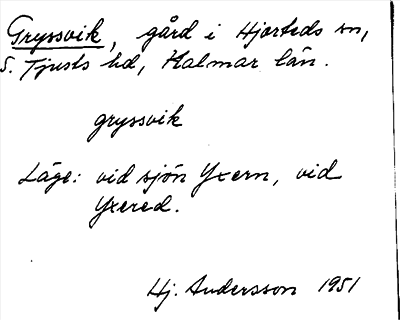 Gryssvik, gård i Hjorteds sn,
S. Tjusts hd, Kalmar län.
gryssvik
Läge: vid sjön Yxern, vid
Yxered.
Hj. Andersson 1951